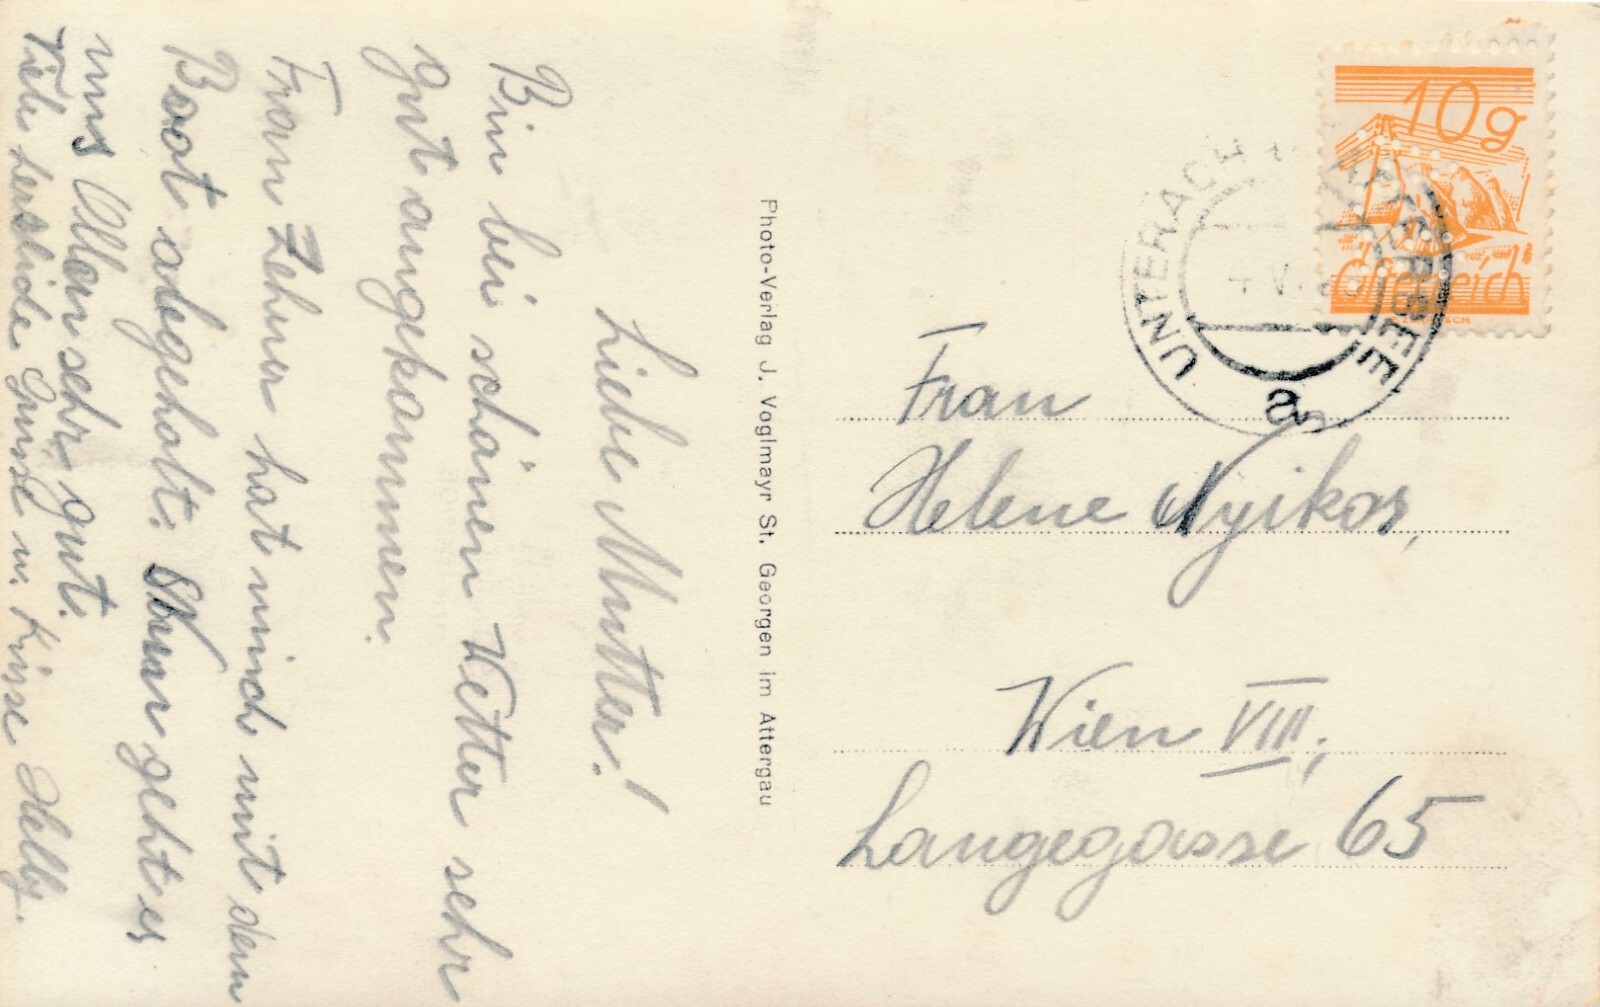 Liebe Mutter!
Bin bei schönen Wetter sehr
gut angekommen.
Frau Zehner hat mich mit dem
Boot abgeholt. geht es
uns Allen sehr gut.
Viele herzliche Grüsse u. Küsse Helly.
Photo-Verlag J. Voglmayr St. Georgen im Attergau
10g
Österreich
UNTERACH AM ATTERSEE
a
Frau
Helene Nyikos,
Wien VIII,
Langegasse 65